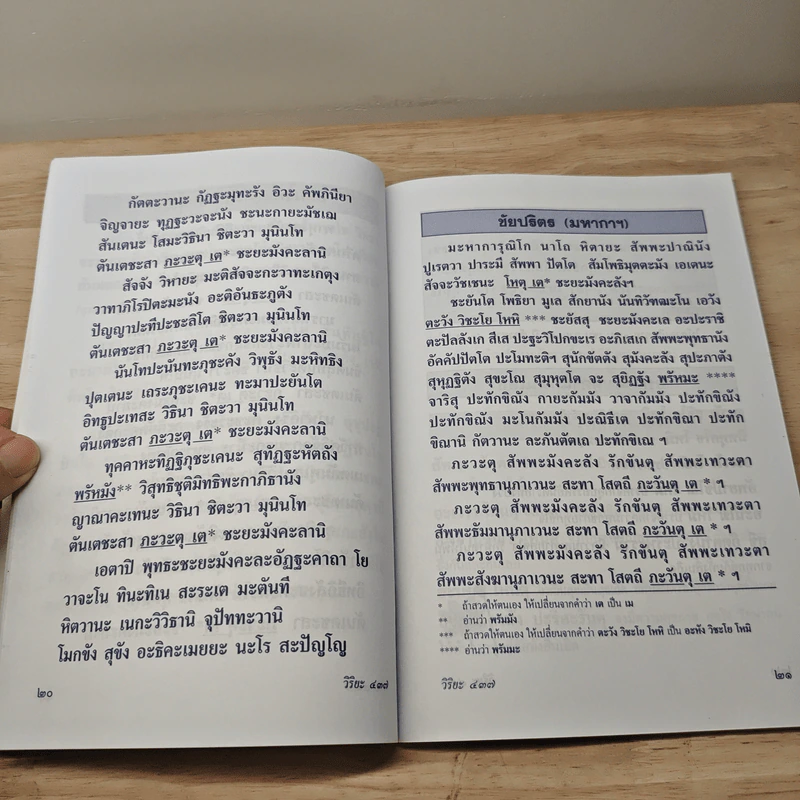 กัตตะวานะ กัฏฐะมุทะรัง อิวะ คัพภินียา
จิญจายะ ทุฏฐะวะจะนัง ชะนะกายะมัชเฌ
สันเตนะ โสมะวิธินา ชิตะวา มุนินโท
ตันเตชะสา ภะวะตุ เต* ชะยะมังคะลานิ
สัจจัง วิหายะ มะติสัจจะกะวาทะเกตุง
วาทาภิโรปิตะมะนัง อะติอันธะภูตัง
ปัญญาปะทีปะชะลิโต ชิตะวา มุนินโท
ตันเตชะสา ภะวะตุ เต* ชะยะมังคะลานิ
นันโทปะนันทะภุชะคัง วิพุธัง มะหิทธิง
ปุตเตนะ เถระภุชะเคนะ ทะมาปะยันโต
อิทธูปะเทสะ วิธินา ชิตะวา มุนินโท
ตันเตชะสา ภะวะตุ เต* ชะยะมังคะลานิ
ทุคคาหะทิฏฐิภุชะเคนะ สุทัฏฐะหัตถัง
พรัหมัง** วิสุทธิชุติมิทธิพะกาภิธานัง
ญาณาคะเทนะ วิธินา ชิตะวา มุนินโท
ตันเตชะสา ภะวะตุ เต* ชะยะมังคะลานิ
เอตาปิ พุทธะชะยะมังคะละอัฏฐะคาถา โย
วาจะโน ทินะทิเน สะระเต มะตันที
หิตวานะ เนกะวิวิธานิ จุปัททะวานิ
โมกขัง สุขัง อะธิคะเมยยะ นะโร สะปัญโญ
๒๐
วิริยะ ๔๓๗
ชัยปริตร (มหากาฯ)
มะหาการุณิโก นาโถ หิตายะ สัพพะปาณินัง
ปูเรตวา ปาระมี สัพพา ปัตโต สัมโพธิมุตตะมัง เอเตนะ
สัจจะวัชเชนะ โหตุ เต* ชะยะมังคะลังฯ
ชะยันโต โพธิยา มูเล สักยานัง นันทิวัฑฒะโน เอวัง
ตะวัง วิชะโย โหหิ *** ชะยัสสุ ชะยะมังคะเล อะปะราชิ
ตะปัลลังเก สีเส ปะฐะวิโปกขะเร อะภิเสเก สัพพะพุทธานัง
อัคคัปปัตโต ปะโมทะติฯ สุนักขัตตัง สุมังคะลัง สุปะภาตัง
สุหุฏฐิตัง สุขะโณ สุมุหุตโต จะ สุยิฏฐัง พรัหมะ ****
จาริสุ ปะทักขิณัง กายะกัมมัง วาจากัมมัง ปะทักขิณัง
ปะทักขิณัง มะโนกัมมัง ปะณิธีเต ปะทักขิณา ปะทัก
ขิณานิ กัตวานะ ละภันตัตเถ ปะทักขิเณ ฯ
ภะวะตุ สัพพะมังคะลัง รักขันตุ สัพพะเทวะตา
สัพพะพุทธานุภาเวนะ สะทา โสตถี ภะวันตุ เต * ฯ
ภะวะตุ สัพพะมังคะลัง รักขันตุ สัพพะเทวะตา
สัพพะธัมมานุภาเวนะ สะทา โสตถี ภะวันตุ เต * ฯ
ภะวะตุ สัพพะมังคะลัง รักขันตุ สัพพะเทวะตา
สัพพะสังฆานุภาเวนะ สะทา โสตถี ภะวันตุ เต * ฯ
* ถ้าสวดให้ตนเอง ให้เปลี่ยนจากคำว่า เต เป็น เม
** อ่านว่า พรัมมัง
*** ถ้าสวดให้ตนเอง ให้เปลี่ยนจากคำว่า ตะวัง วิชะโย โหหิ เป็น อะหัง วิชะโย โหมิ
**** อ่านว่า พรัมมะ
วิริยะ ๔๓๗
๒๑